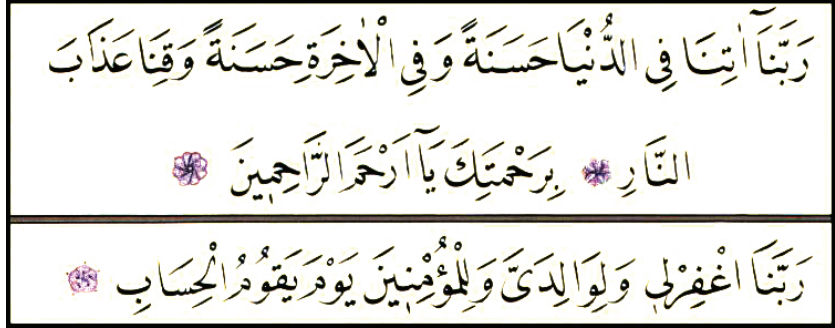 رَبَّنَآ اٰتِنَا فِي الدُّنْيَا حَسَنَةً وَفِي الْاٰخِرَةِ حَسَنَةً وَقِنَا عَذَابَ
النَّارِ بِرَحْمَتِكَ يَآ اَرْحَمَ الرَّاحِمِينَ
رَبَّنَا اغْفِرْلِي وَلِوَالِدَيَّ وَلِلْمُؤْمِنِينَ يَوْمَ يَقُومُ الْحِسَابِ